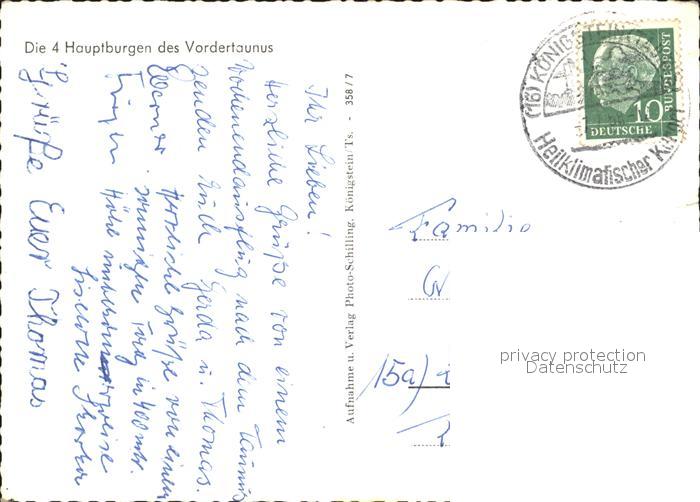 Die 4 Hauptburgen des Vordertaunus
Ihr Lieben!
Herzliche Grüße von einem
Wochenendausflug nach dem Taunus
senden Euch Gerda u. Thomas.
Werner.
Herzliche Grüße von einem
sonnigen Tag in 400 mtr.
Höhe
Liselotte
Grüße Euer Thomas
Aufnahme u. Verlag Photo-Schilling, Königstein/Ts. - 358/7
(16) KÖNIGSTEIN
Heilklimatischer
10
DEUTSCHE
BUNDESPOST
Familie
15a)
privacy protection
Datenschutz